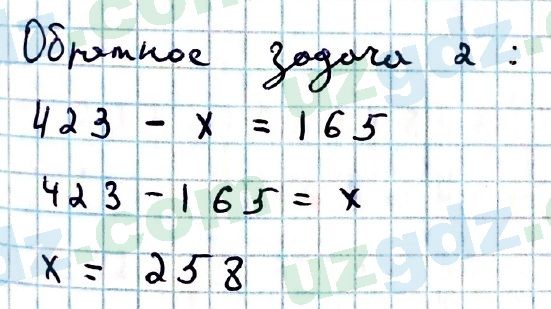 Обратное задача 2 :
423 - x = 165
423 - 165 = x
x = 258
uzgdz.com